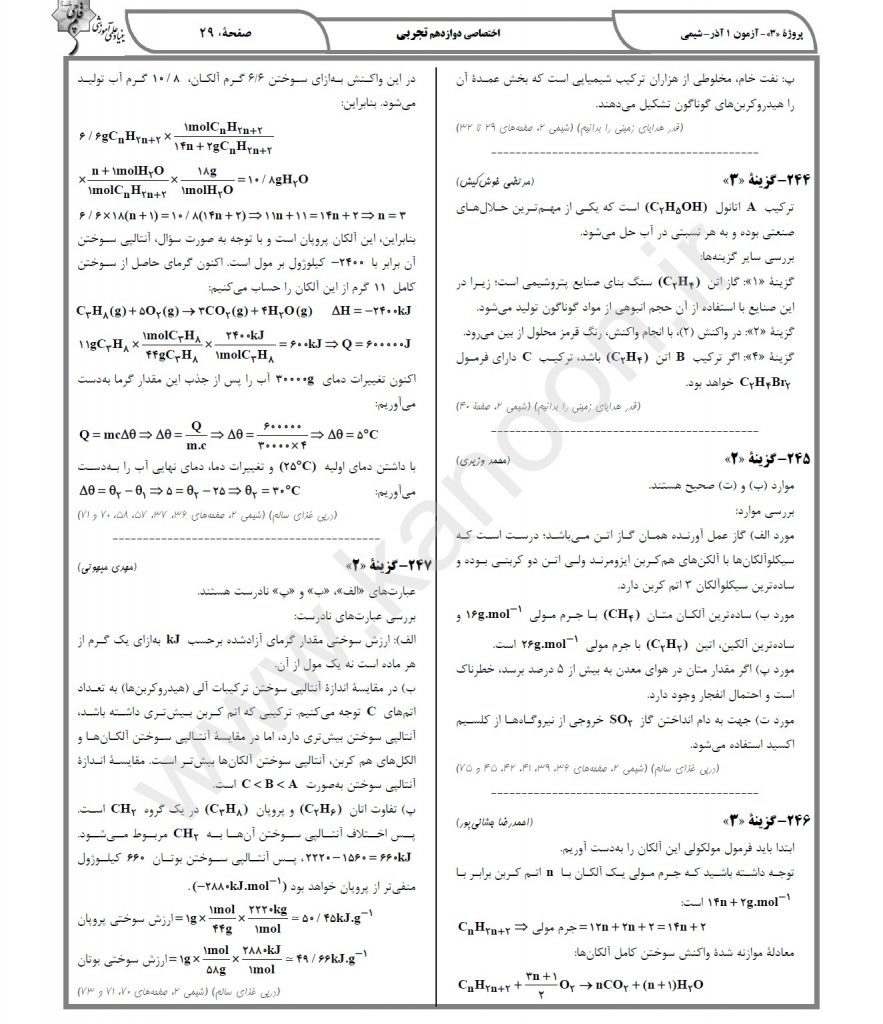 بنیاد علمی آموزشی
قلم‌چی
صفحهٔ: ۲۹
اختصاصی دوازدهم تجربی
پروژهٔ «۳»- آزمون ۱ آذر-شیمی
پ: نفت خام، مخلوطی از هزاران ترکیب شیمیایی است که بخش عمدهٔ آن
را هیدروکربن‌های گوناگون تشکیل می‌دهند.
(قدر هدایای زمینی را بدانیم) (شیمی ۲، صفحه‌های ۲۹ تا ۳۲)
۲۴۴-گزینهٔ «۳»
(مرتضی خوش‌کیش)
ترکیب A اتانول (C₂H₅OH) است که یکی از مهم‌ترین حلال‌های
صنعتی بوده و به هر نسبتی در آب حل می‌شود.
بررسی سایر گزینه‌ها:
گزینهٔ «۱»: گاز اتن (C₂H₄) سنگ بنای صنایع پتروشیمی است؛ زیرا در
این صنایع با استفاده از آن حجم انبوهی از مواد گوناگون تولید می‌شود.
گزینهٔ «۲»: در واکنش (۲)، با انجام واکنش، رنگ قرمز محلول از بین می‌رود.
گزینهٔ «۴»: اگر ترکیب B اتن (C₂H₄) باشد، ترکیب C دارای فرمول
C₂H₄Br₂ خواهد بود.
(قدر هدایای زمینی را بدانیم) (شیمی ۲، صفحهٔ ۴۰)
۲۴۵-گزینهٔ «۲»
(محمد وزیری)
موارد (ب) و (ت) صحیح هستند.
بررسی موارد:
مورد الف) گاز عمل آورنده همان گاز اتن می‌باشد؛ درست است که
سیکلوآلکان‌ها با آلکن‌های هم‌کربن ایزومرند ولی اتن دو کربنی بوده و
ساده‌ترین سیکلوآلکان ۳ اتم کربن دارد.
مورد ب) ساده‌ترین آلکان متان (CH₄) با جرم مولی ۱۶g.mol⁻¹ و
ساده‌ترین آلکین، اتین (C₂H₂) با جرم مولی ۲۶g.mol⁻¹ است.
مورد پ) اگر مقدار متان در هوای معدن به بیش از ۵ درصد برسد، خطرناک
است و احتمال انفجار وجود دارد.
مورد ت) جهت به دام انداختن گاز SO₂ خروجی از نیروگاه‌ها از کلسیم
اکسید استفاده می‌شود.
(درپی غذای سالم) (شیمی ۲، صفحه‌های ۳۶، ۳۹، ۴۱، ۴۲، ۴۵ و ۷۵)
۲۴۶-گزینهٔ «۳»
(احمدرضا جشانی‌پور)
ابتدا باید فرمول مولکولی این آلکان را به‌دست آوریم.
توجه داشته باشید که جرم مولی یک آلکان با n اتم کربن برابر با
۱۴n + ۲g.mol⁻¹ است:
CnH₂n+₂ ⇒ جرم مولی = ۱۲n + ۲n + ۲ = ۱۴n + ۲
معادلهٔ موازنه شدهٔ واکنش سوختن کامل آلکان‌ها:
CnH₂n+₂ + (۳n+۱)/۲ O₂ → nCO₂ + (n+۱)H₂O
در این واکنش به‌ازای سوختن ۶/۶ گرم آلکان، ۱۰/۸ گرم آب تولید
می‌شود. بنابراین:
۶/۶gCnH₂n+₂ × ۱molCnH₂n+₂ / ۱۴n + ۲gCnH₂n+₂
× n + ۱molH₂O / ۱molCnH₂n+₂ × ۱۸g / ۱molH₂O = ۱۰/۸gH₂O
۶/۶ × ۱۸(n + ۱) = ۱۰/۸(۱۴n + ۲) ⇒ ۱۱n + ۱۱ = ۱۴n + ۲ ⇒ n = ۳
بنابراین، این آلکان پروپان است و با توجه به صورت سؤال، آنتالپی سوختن
آن برابر با ۲۴۰۰− کیلوژول بر مول است. اکنون گرمای حاصل از سوختن
کامل ۱۱ گرم از این آلکان را حساب می‌کنیم:
C₃H₈(g) + ۵O₂(g) → ۳CO₂(g) + ۴H₂O(g) ΔH = −۲۴۰۰kJ
۱۱gC₃H₈ × ۱molC₃H₈ / ۴۴gC₃H₈ × ۲۴۰۰kJ / ۱molC₃H₈ = ۶۰۰kJ ⇒ Q = ۶۰۰۰۰۰J
اکنون تغییرات دمای ۳۰۰۰۰g آب را پس از جذب این مقدار گرما به‌دست
می‌آوریم:
Q = mcΔθ ⇒ Δθ = Q / m.c ⇒ Δθ = ۶۰۰۰۰۰ / ۳۰۰۰۰ × ۴ ⇒ Δθ = ۵°C
با داشتن دمای اولیه (۲۵°C) و تغییرات دما، دمای نهایی آب را به‌دست
می‌آوریم: Δθ = θ₂ − θ₁ ⇒ ۵ = θ₂ − ۲۵ ⇒ θ₂ = ۳۰°C
(درپی غذای سالم) (شیمی ۲، صفحه‌های ۳۶، ۳۷، ۵۷، ۵۸، ۷۰ و ۷۱)
۲۴۷-گزینهٔ «۲»
(مهدی مبهوتی)
عبارت‌های «الف»، «ب» و «پ» نادرست هستند.
بررسی عبارت‌های نادرست:
الف): ارزش سوختی مقدار گرمای آزادشده برحسب kJ به‌ازای یک گرم از
هر ماده است نه یک مول از آن.
ب) در مقایسهٔ اندازهٔ آنتالپی سوختن ترکیبات آلی (هیدروکربن‌ها) به تعداد
اتم‌های C توجه می‌کنیم. ترکیبی که اتم کربن بیش‌تری داشته باشد،
آنتالپی سوختن بیش‌تری دارد، اما در مقایسهٔ آنتالپی سوختن آلکان‌ها و
الکل‌های هم کربن، آنتالپی سوختن آلکان‌ها بیش‌تر است. مقایسهٔ اندازهٔ
آنتالپی سوختن به‌صورت C < B < A است.
پ) تفاوت اتان (C₂H₆) و پروپان (C₃H₈) در یک گروه CH₂ است.
پس اختلاف آنتالپی سوختن آن‌ها به CH₂ مربوط می‌شود.
۲۲۲۰−۱۵۶۰ = ۶۶۰kJ، پس آنتالپی سوختن بوتان ۶۶۰ کیلوژول
منفی‌تر از پروپان خواهد بود (−۲۸۸۰kJ.mol⁻¹).
ارزش سوختی پروپان = ۱g × ۱mol / ۴۴g × ۲۲۲۰kg / ۱mol ≃ ۵۰/۴۵kJ.g⁻¹
ارزش سوختی بوتان = ۱g × ۱mol / ۵۸g × ۲۸۸۰kJ / ۱mol ≃ ۴۹/۶۶kJ.g⁻¹
(درپی غذای سالم) (شیمی ۲، صفحه‌های ۷۰، ۷۱ و ۷۳)
www.kanoon.ir